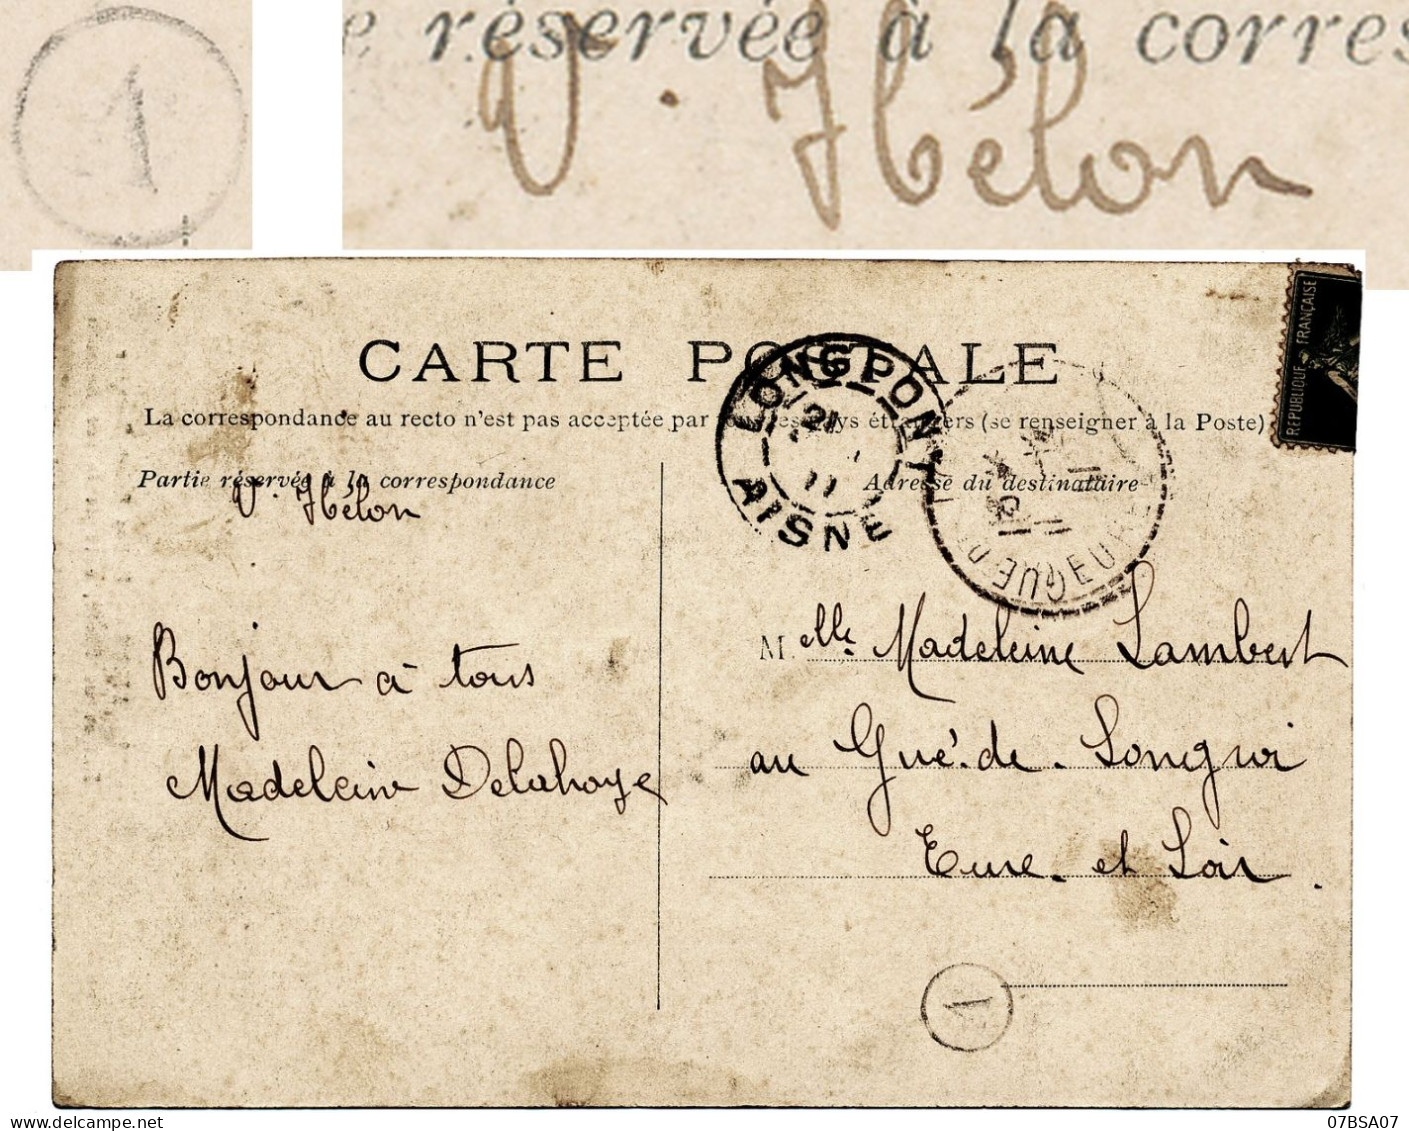 1
e réservée à la corres
V. Hélon
CARTE POSTALE
La correspondance au recto n'est pas acceptée par tous les pays étrangers (se renseigner à la Poste)
REPUBLIQUE FRANÇAISE
LONGPONT
21
11
AISNE
Partie réservée à la correspondance
Adresse du destinataire
V. Hélon
Bonjour à tous
Madeleine Delahaye
M elle Madeleine Lambert
au Gué. de. Longroi
Eure. et Loir.
1
07BSA07